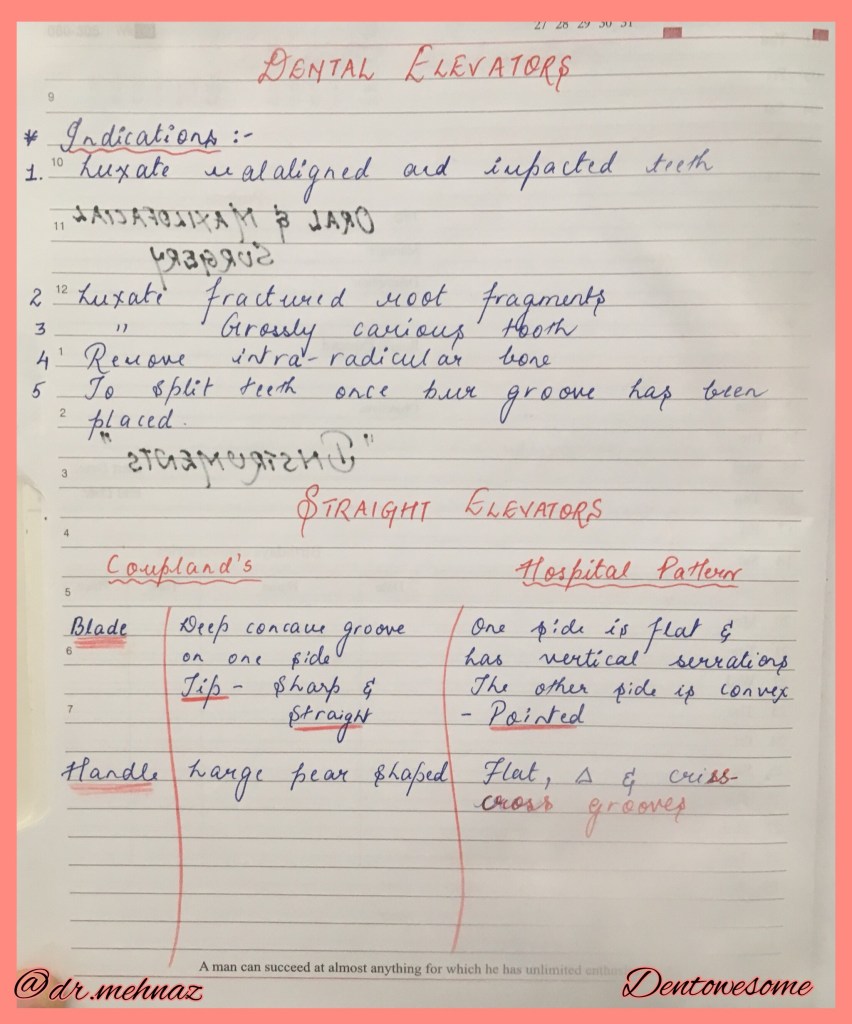 27 28 29 30 31
DENTAL ELEVATORS
9
* Indications :-
10
1. Luxate malaligned and impacted teeth
11
ORAL & MAXILOFACIAL
SURGERY
12
2 Luxate fractured root fragments
3 " Grossly carious tooth
1
4 Remove intra-radicular bone
5 To split teeth once bur groove has been
2
placed.
"INSTRUMENTS"
3
STRAIGHT ELEVATORS
4
Coupland's Hospital Pattern
5
Blade Deep concave groove One side is flat &
6
on one side has vertical serrations
Tip - Sharp & The other side is convex
7
Straight - Pointed
Handle Large pear shaped Flat, △ & criss-
cross grooves
A man can succeed at almost anything for which he has unlimited
@dr.mehnaz Dentowesome